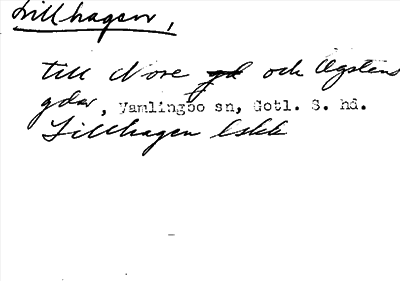 Lillhagen,
till Nore och Ägstens
gdar, Vamlingbo sn, Gotl. S. hd.
Lillhagen Eskk